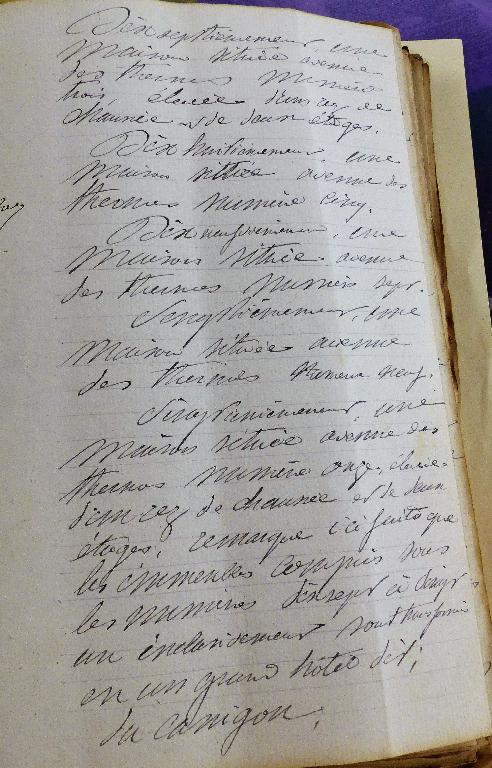 Dix septièmement, une
maison située avenue
des thermes numéro
trois élevée d'un rez de
chaussée et de deux étages.
Dix huitièmement, une
maison située avenue des
thermes numéro cinq.
Dix neuvièmement, une
maison située avenue
des thermes numéro sept.
une
maison située avenue
des thermes numéro neuf.
une
maison située avenue des
thermes numéro onze, élevée
d'un rez de chaussée et de deux
étages, remarque ici faite que
les immeubles compris sous
les numéros dix sept à vingt
un inclusivement sont transformés
en un grand hôtel dit;
du Canigou.